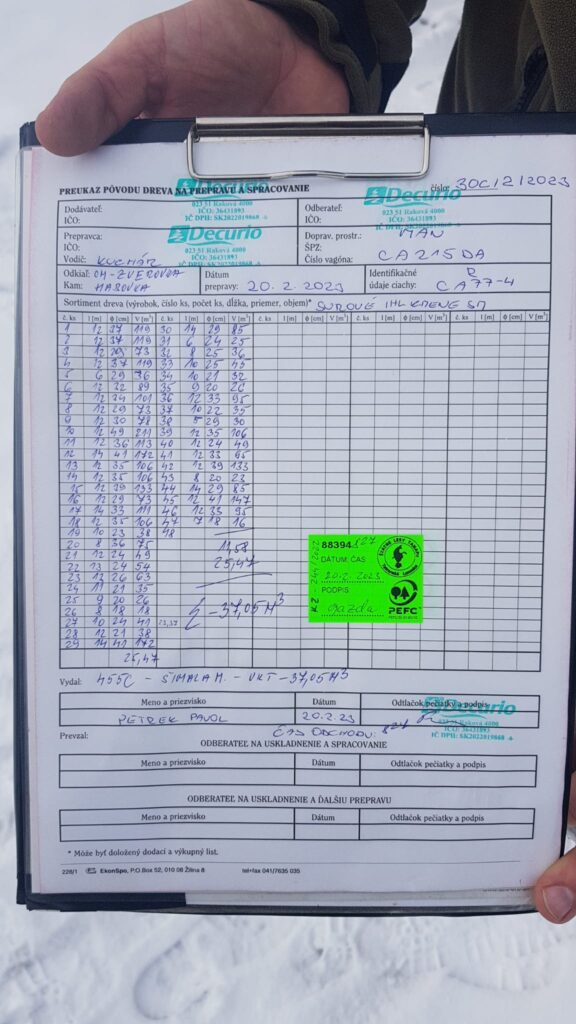 PREUKAZ PÔVODU DREVA NA PREPRAVU A SPRACOVANIE
číslo: 30C/2/2023
Decurio
023 51 Raková 4000
IČO: 36431893
IČ DPH: SK2022019868
Dodávateľ:
IČO:
Decurio
023 51 Raková 4000
IČO: 36431893
IČ DPH: SK2022019868
Odberateľ:
IČO:
Prepravca:
IČO:
Vodič: KUCHÁR
Decurio
023 51 Raková 4000
IČO: 36431893
IČ DPH: SK2022019868
Doprav. prostr.: MAN
ŠPZ:
Číslo vagóna: CA215DA
Odkiaľ: OH-ZVEROVKA
Kam: HABOVKA
Dátum
prepravy: 20. 2. 2023
Identifikačné
údaje ciachy: CA77-4
Sortiment dreva (výrobok, číslo ks, počet ks, dĺžka, priemer, objem)* SUROVÉ IHL KMENE SM
č. ks l [m] ϕ [cm] V [m³] č. ks l [m] ϕ [cm] V [m³] č. ks l [m] ϕ [cm] V [m³] č. ks l [m] ϕ [cm] V [m³] č. ks l [m] ϕ [cm] V [m³]
1 12 37 119 30 14 29 85
2 12 37 119 31 6 24 25
3 12 29 73 32 8 25 36
4 12 37 119 33 10 25 45
5 6 29 36 34 10 21 32
6 12 32 89 35 9 20 26
7 12 34 101 36 12 33 95
8 12 29 73 37 10 22 35
9 12 30 78 38 5 29 30
10 12 49 211 39 12 35 106
11 12 36 113 40 12 24 49
12 14 41 172 41 12 33 95
13 12 35 106 42 12 39 133
14 12 35 106 43 8 20 23
15 12 39 133 44 14 29 85
16 12 29 73 45 12 41 147
17 14 33 111 46 12 33 95
18 12 35 106 47 7 18 16
19 10 23 38 48
20 8 36 75
21 12 24 49 11,58
22 13 24 54 25,47
23 12 26 63
24 11 21 35
25 9 20 26
26 8 18 18
27 10 24 41
28 12 21 38
29 14 41 172
25,47
37,05 M³
88394
DÁTUM, ČAS
20.2. 2023
PODPIS
gazda
PEFC
Vydal: 455C - ŠIMALA M. - VKT - 37,05 M³
Meno a priezvisko Dátum Odtlačok pečiatky a podpis
PETREK PAVOL 20.2.23
Decurio
023 51 Raková 4000
IČO: 36431893
IČ DPH: SK2022019868
Prevzal: ČAS ODCHODU:
ODBERATEĽ NA USKLADNENIE A SPRACOVANIE
Meno a priezvisko Dátum Odtlačok pečiatky a podpis
ODBERATEĽ NA USKLADNENIE A ĎALŠIU PREPRAVU
Meno a priezvisko Dátum Odtlačok pečiatky a podpis
* Môže byť doložený dodací a výkupný list.
228/1 EkonSpo, P.O.Box 52, 010 08 Žilina 8 tel+fax 041/7635 035